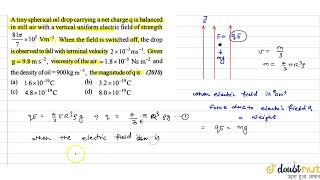 A tiny spherical oil drop carrying a net charge q is balanced
in still air with a vertical uniform electric field of strength
81π/7 × 10⁵ Vm⁻¹. When the field is switched off, the drop
is observed to fall with terminal velocity 2×10⁻³ ms⁻¹. Given
g = 9.8 m s⁻², viscosity of the air = 1.8×10⁻⁵ Ns m⁻² and
the density of oil = 900 kg m⁻³, the magnitude of q is (2010)
(a) 1.6×10⁻¹⁹ C (b) 3.2×10⁻¹⁹ C
(c) 4.8×10⁻¹⁹ C (d) 8.0×10⁻¹⁹ C
E
mg
m = 4/3 πR³ρ
when electric field is "on"
force due to electric field is
= weight
qE = mg
qE = 4/3 πR³ρg → q = 4/3 π R³ρg - ①
when the electric field is
doubtnut